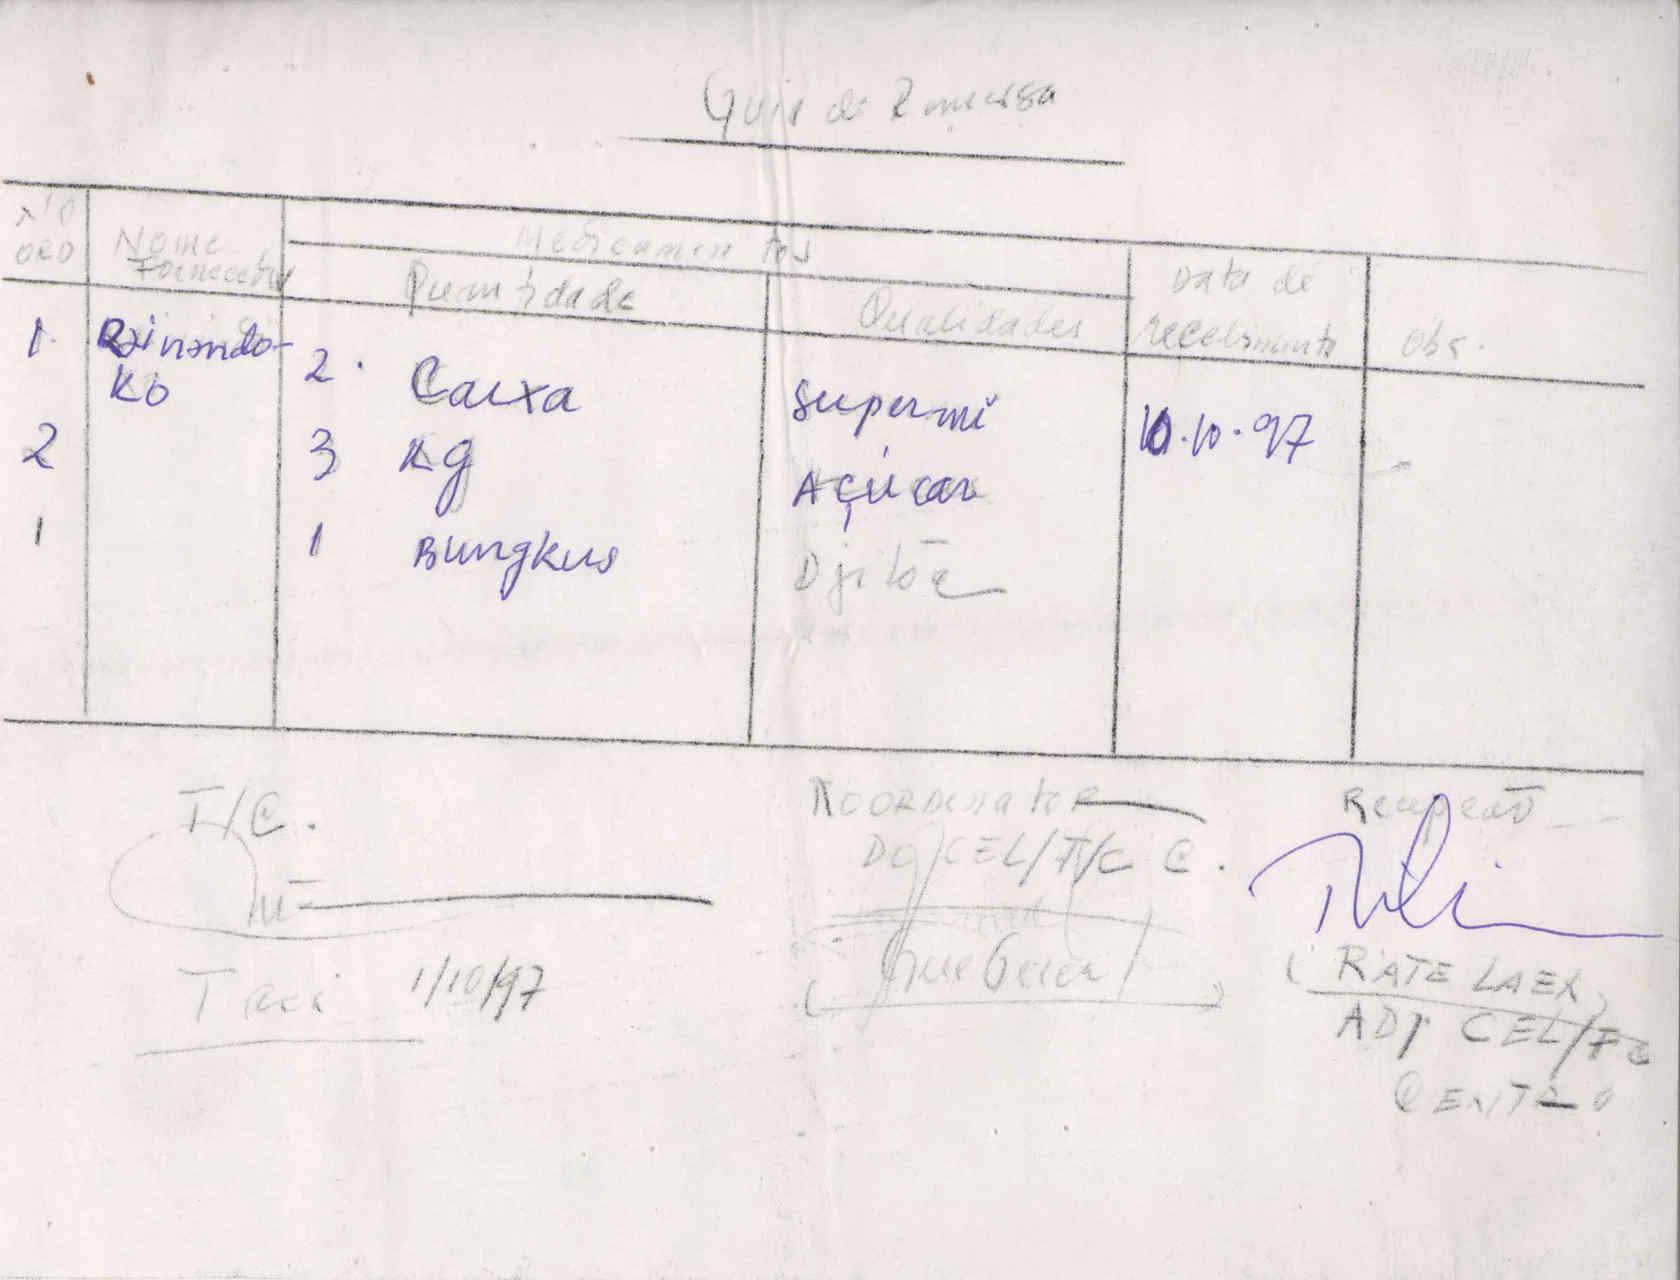 Guia de Remessa
Nº ORD
Nome Fornecedor
Medicamentos
Quantidade
Qualidades
Data de recebimento
Obs.
1. Rainando- 2. Caixa Supermi 10.10.97
Ko
2 3 Kg Açúcar
1 1 Bungkus Djitoe
T/C.
Koordenator
Recepcão
DQ/CEL/T/C C.
Taci 1/10/97
( RATE LAEK )
ADJ CEL/FC
CENTRO